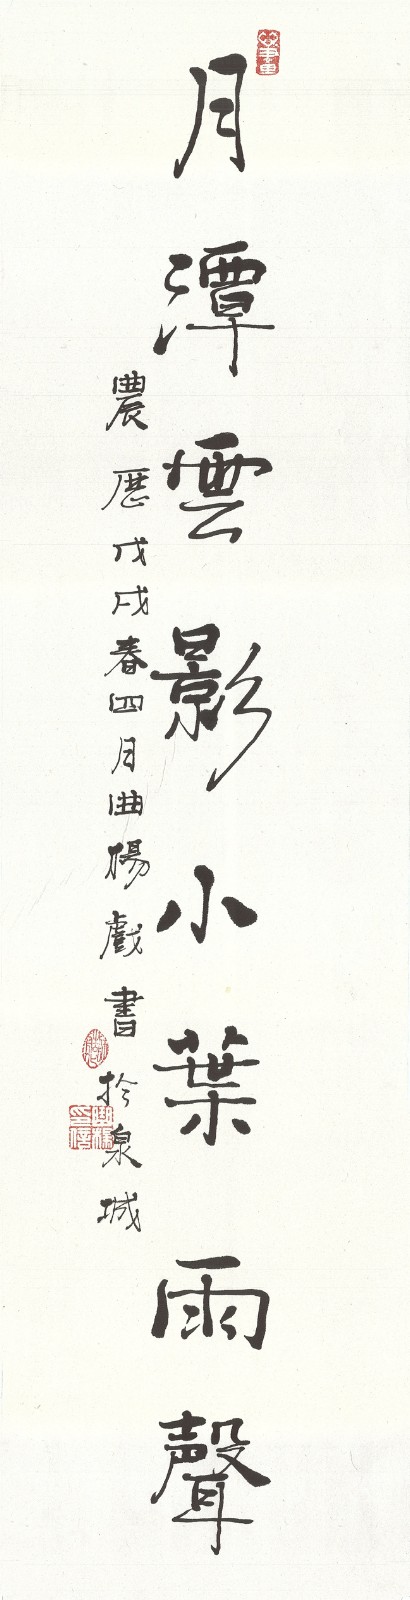 月潭雲影小葉雨聲
農历戊戌春四月曲楊戲書於泉城